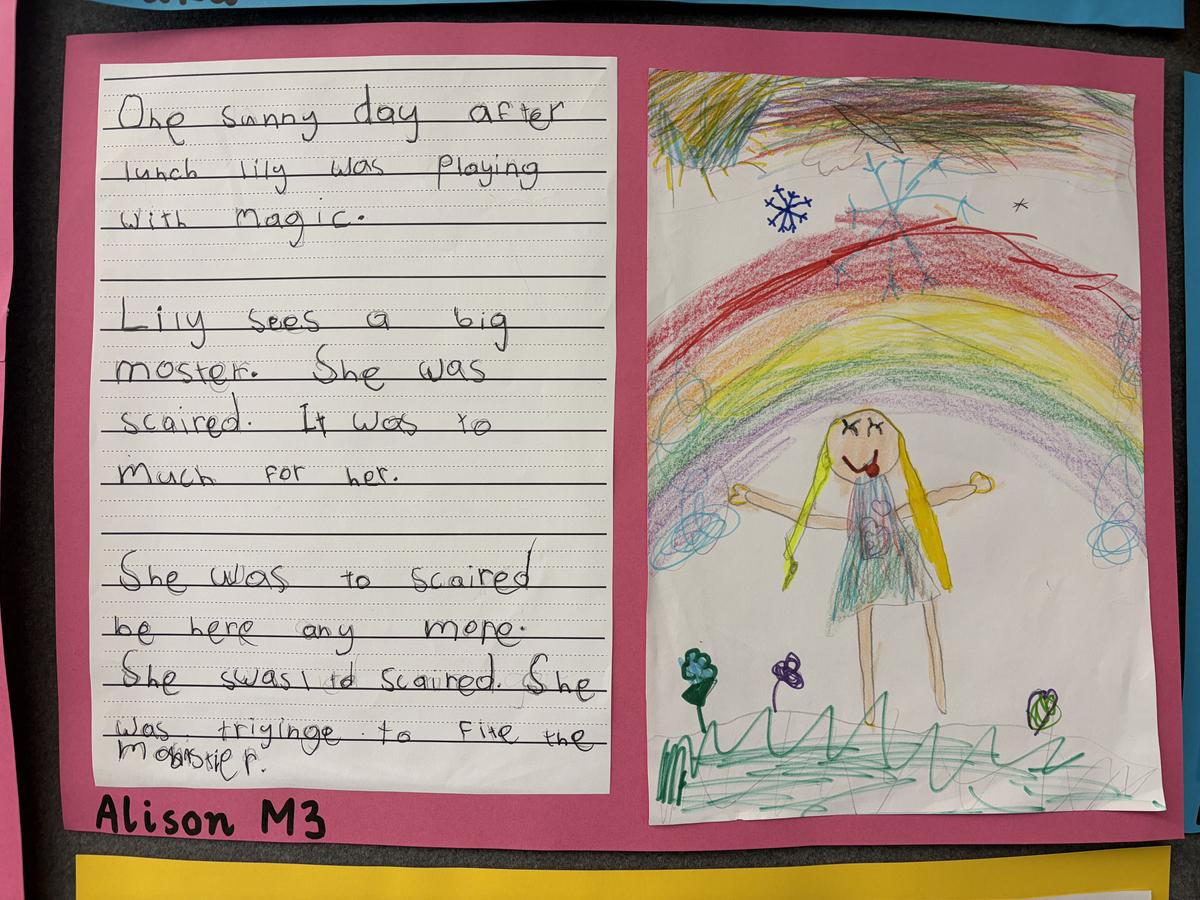 One sunny day after
lunch lily was Playing
with magic.
Lily sees a big
moster. She was
scaired. It was to
much for her.
She was to scaired
be here any mope.
She scaired. She
was triyinge to fite the
Alison M3